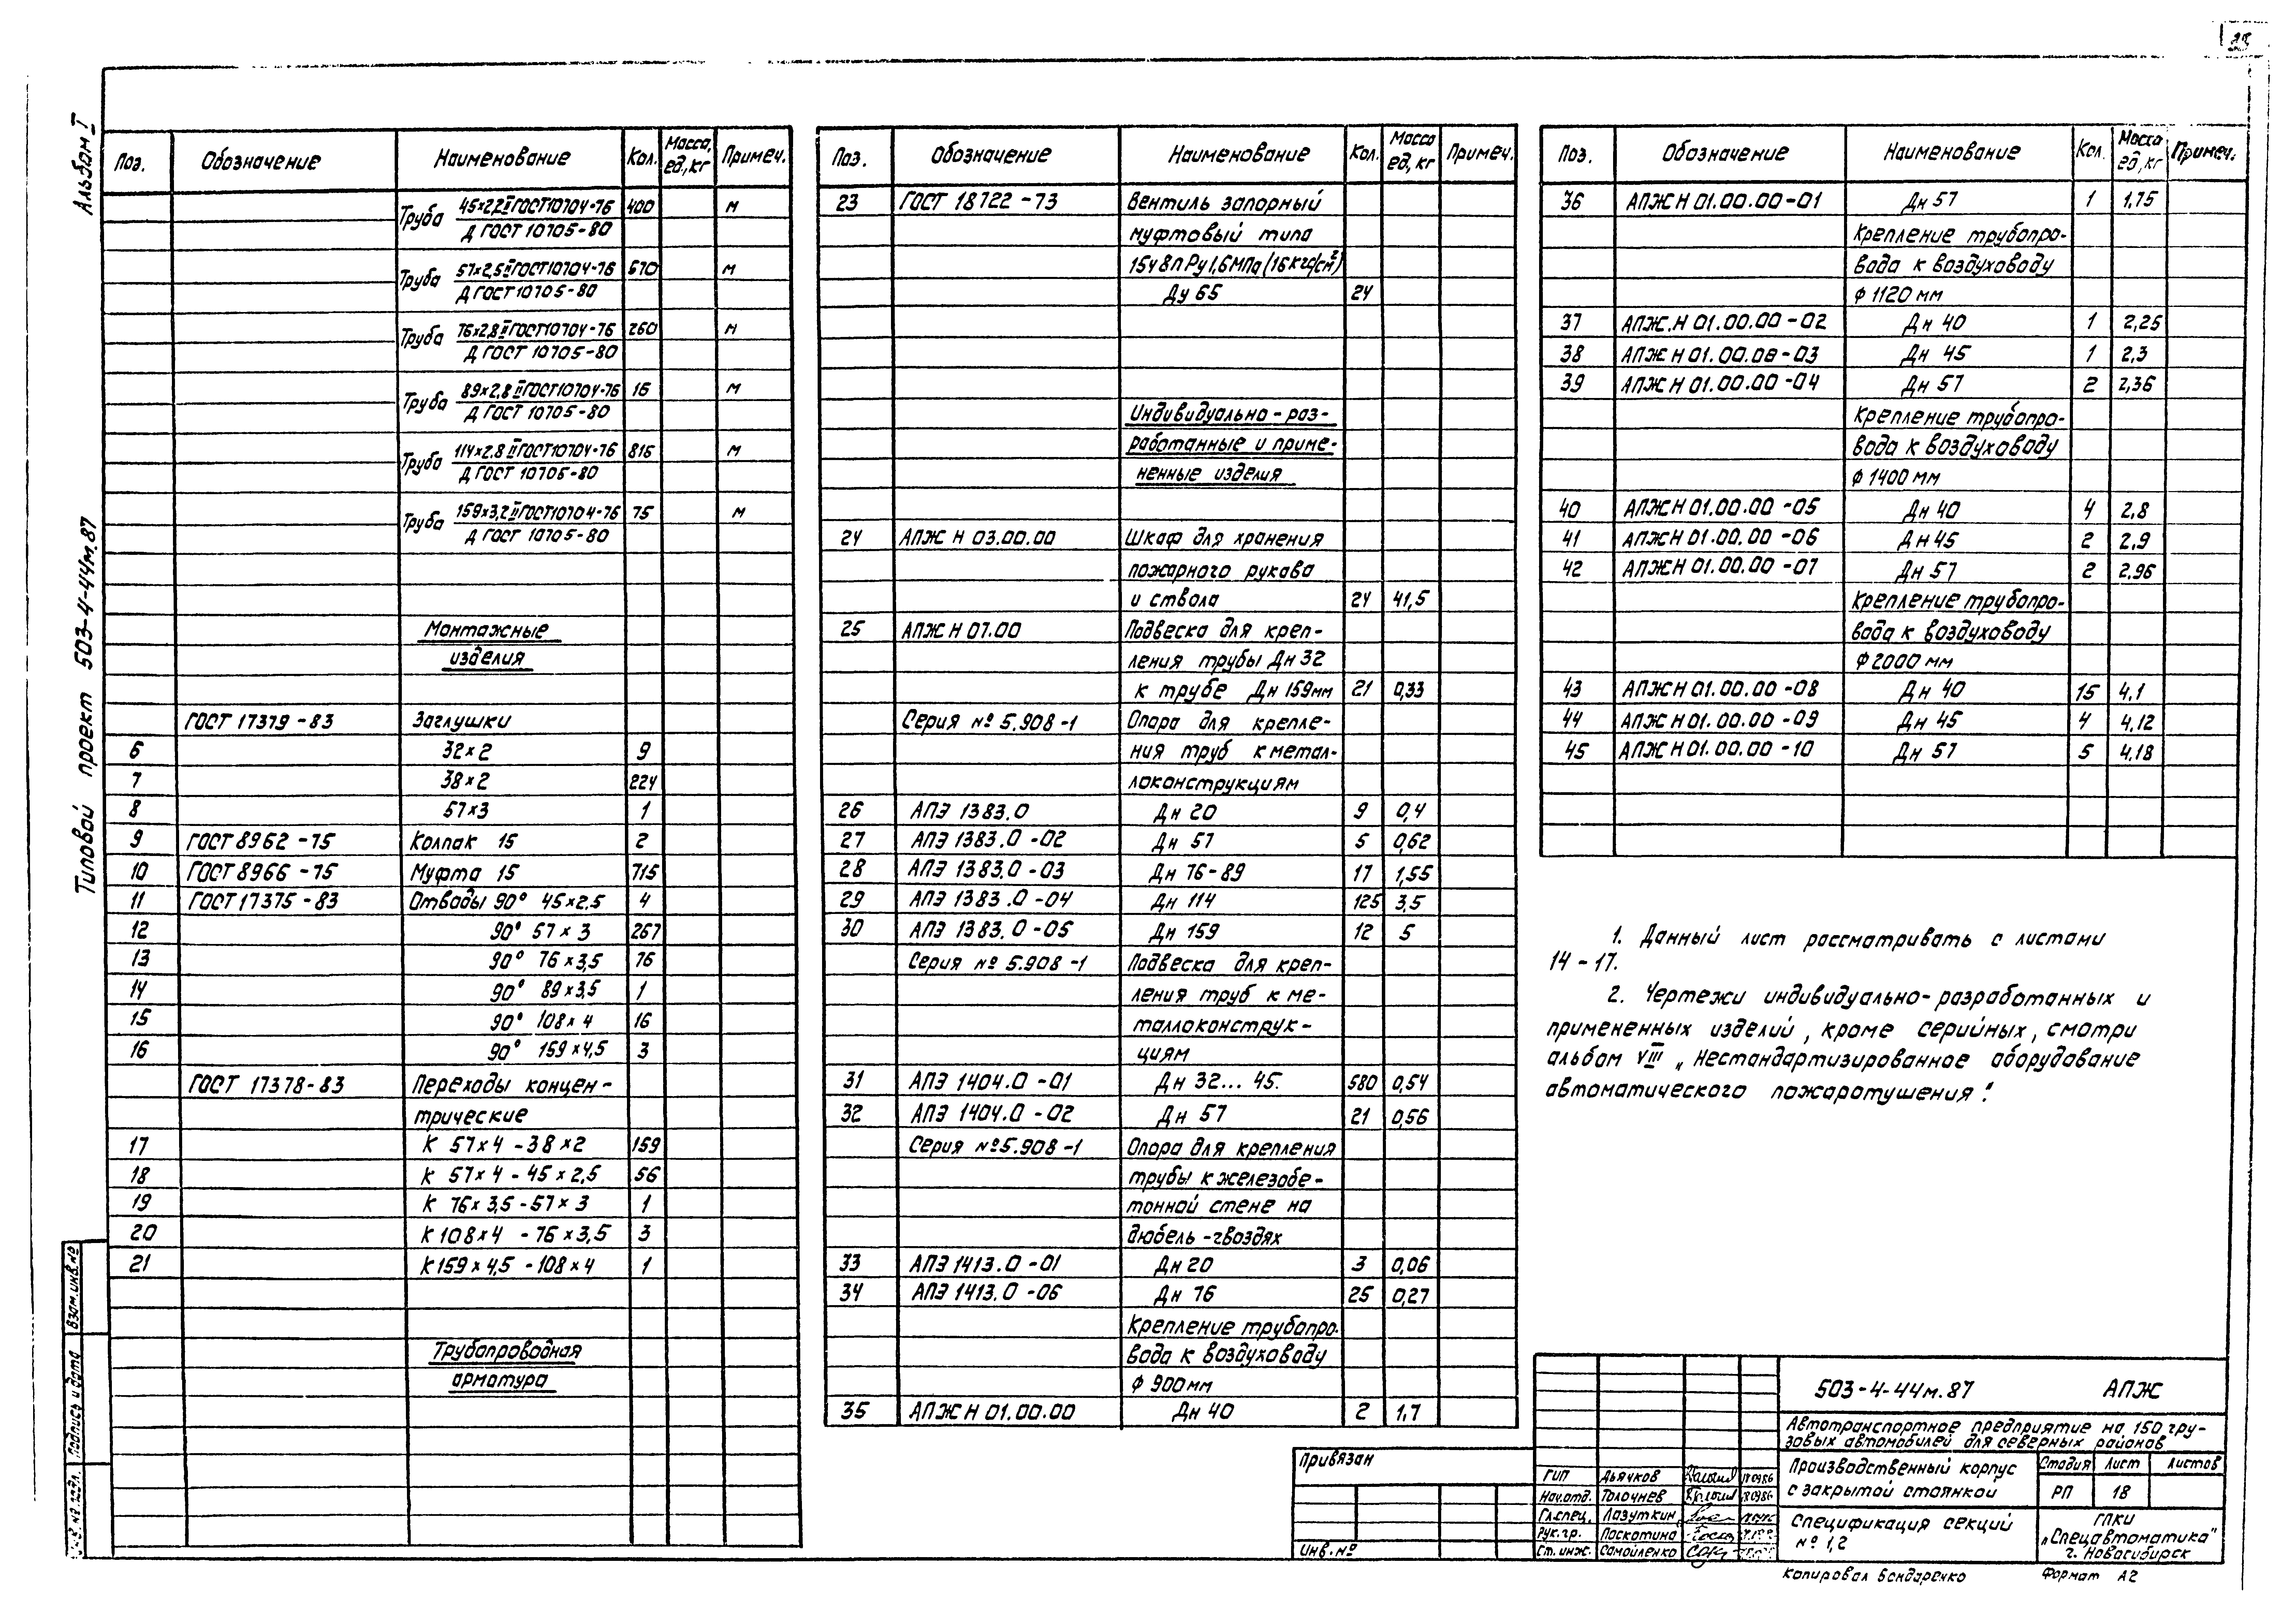 Альбом I
Типовой проект 503-4-44м.87
Поз. Обозначение Наименование Кол. Масса, ед., кг Примеч.
Труба 45×2,2 II ГОСТ10704-76 400 м
Д ГОСТ 10705-80
Труба 57×2,5 II ГОСТ10704-76 570 м
Д ГОСТ 10705-80
Труба 76×2,8 II ГОСТ10704-76 260 м
Д ГОСТ 10705-80
Труба 89×2,8 II ГОСТ10704-76 16 м
Д ГОСТ 10705-80
Труба 114×2,8 II ГОСТ10704-76 815 м
Д ГОСТ 10705-80
Труба 159×3,2 II ГОСТ10704-76 75 м
Д ГОСТ 10705-80
Монтажные
изделия
ГОСТ 17379-83 Заглушки
6 32×2 9
7 38×2 224
8 57×3 1
9 ГОСТ 8962-75 Колпак 15 2
10 ГОСТ 8966-75 Муфта 15 715
11 ГОСТ 17375-83 Отводы 90° 45×2.5 4
12 90° 57×3 267
13 90° 76×3,5 76
14 90° 89×3,5 1
15 90° 108×4 16
16 90° 159×4,5 3
ГОСТ 17378-83 Переходы концен-
трические
17 К 57×4-38×2 159
18 К 57×4-45×2,5 56
19 К 76×3,5-57×3 1
20 К 108×4 -76×3,5 3
21 К 159×4,5 -108×4 1
Трубопроводная
арматура
Поз. Обозначение Наименование Кол. Масса ед, кг Примеч.
23 ГОСТ 18722-73 Вентиль запорный
муфтовый типа
15ч8п Ру 1,6МПа (16кгс/см²)
Ду 65 24
Индивидуально-раз-
работанные и приме-
ненные изделия
24 АПЖ Н 03.00.00 Шкаф для хранения
пожарного рукава
и ствола 24 41,5
25 АПЖ Н 07.00 Подвеска для креп-
ления трубы Дн 32
к трубе Дн 159мм 21 0,33
Серия № 5.908-1 Опора для крепле-
ния труб к метал-
локонструкциям
26 АПЭ 1383.0 Дн 20 9 0,4
27 АПЭ 1383.0-02 Дн 57 5 0,62
28 АПЭ 1383.0-03 Дн 76-89 17 1,55
29 АПЭ 1383.0-04 Дн 114 125 3,5
30 АПЭ 1383.0-05 Дн 159 12 5
Серия № 5.908-1 Подвеска для креп-
ления труб к ме-
таллоконструк-
циям
31 АПЭ 1404.0-01 Дн 32...45. 580 0,54
32 АПЭ 1404.0-02 Дн 57 21 0,56
Серия № 5.908-1 Опора для крепления
трубы к железобе-
тонной стене на
дюбель-гвоздях
33 АПЭ 1413.0-01 Дн 20 3 0,06
34 АПЭ 1413.0-06 Дн 76 25 0,27
Крепление трубопро-
вода к воздуховоду
ф 900мм
35 АПЖ Н 01.00.00 Дн 40 2 1,7
Поз. Обозначение Наименование Кол. Масса ед, кг Примеч.
36 АПЖ Н 01.00.00-01 Дн 57 1 1,75
Крепление трубопро-
вода к воздуховоду
ф 1120 мм
37 АПЖ.Н 01.00.00-02 Дн 40 1 2,25
38 АПЖ Н 01.00.00-03 Дн 45 1 2,3
39 АПЖ Н 01.00.00-04 Дн 57 2 2,36
Крепление трубопро-
вода к воздуховоду
ф 1400 мм
40 АПЖ Н 01.00.00-05 Дн 40 4 2,8
41 АПЖ Н 01.00.00-06 Дн 45 2 2,9
42 АПЖ Н 01.00.00-07 Дн 57 2 2,96
Крепление трубопро-
вода к воздуховоду
ф 2000 мм
43 АПЖ Н 01.00.00-08 Дн 40 15 4,1
44 АПЖ Н 01.00.00-09 Дн 45 4 4,12
45 АПЖ Н 01.00.00-10 Дн 57 5 4,18
1. Данный лист рассматривать с листами
14-17.
2. Чертежи индивидуально-разработанных и
примененных изделий, кроме серийных, смотри
альбом VIII „Нестандартизированное оборудование
автоматического пожаротушения".
503-4-44м.87 АПЖ
Автотранспортное предприятие на 150 гру-
зовых автомобилей для северных районов
Производственный корпус
с закрытой стоянкой
Стадия Лист Листов
РП 18
Спецификация секций
№ 1,2
ГПКИ
„Спецавтоматика"
г. Новосибирск
ГИП Дьячков
Нач.отд. Толочнев
Гл.спец. Лазуткин
Рук.гр. Ласкотина
Ст.инж. Самойленко
Привязан
Инв.№
Взам.инв.№
Подпись и дата
Копировал Бондаренко Формат А2